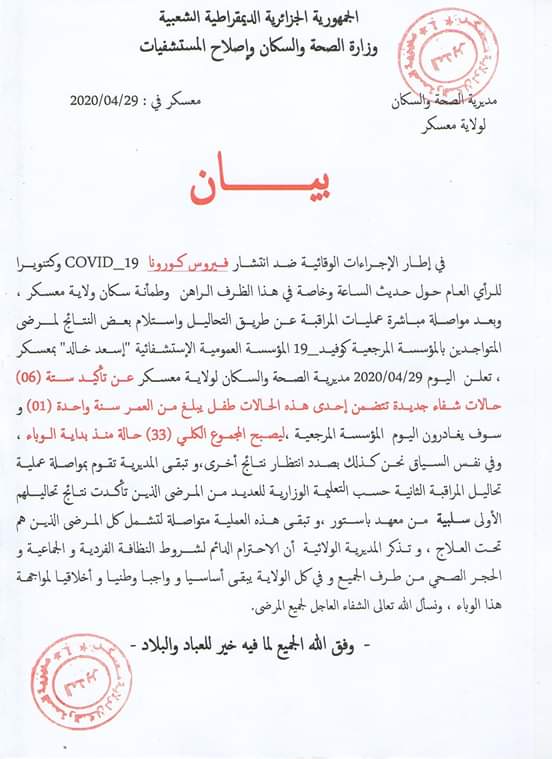 الجمهورية الجزائرية الديمقراطية الشعبية
وزارة الصحة والسكان وإصلاح المستشفيات
مديرية الصحة والسكان
لولاية معسكر
معسكر في : 2020/04/29
بيــــــان
في إطار الإجراءات الوقائية ضد انتشار فيروس كورونا COVID_19 وكتنويرا
للرأي العام حول حديث الساعة وخاصة في هذا الظرف الراهن وطمأنة سكان ولاية معسكر ،
وبعد مواصلة مباشرة عمليات المراقبة عن طريق التحاليل واستلام بعض النتائج لمرضى
المتواجدين بالمؤسسة المرجعية كوفيد_19 المؤسسة العمومية الإستشفائية "إسعد خالد" بمعسكر
، تعلن اليوم 2020/04/29 مديرية الصحة والسكان لولاية معسكر عن تأكيد ستة (06)
حالات شفاء جديدة تتضمن إحدى هذه الحالات طفل يبلغ من العمر سنة واحدة (01) و
سوف يغادرون اليوم المؤسسة المرجعية ،ليصبح المجموع الكلي (33) حالة منذ بداية الوباء ،
وفي نفس السياق نحن كذلك بصدد انتظار نتائج أخرى،و تبقى المديرية تقوم بمواصلة عملية
تحاليل المراقبة الثانية حسب التعليمة الوزارية للعديد من المرضى الذين تأكدت نتائج تحاليلهم
الأولى سلبية من معهد باستور ،و تبقى هذه العملية متواصلة لتشمل كل المرضى الذين هم
تحت العلاج ، و تذكر المديرية الولائية أن الاحترام الدائم لشروط النظافة الفردية و الجماعية و
الحجر الصحي من طرف الجميع و في كل الولاية يبقى أساسيا و واجبا وطنيا و أخلاقيا لمواجهة
هذا الوباء ، ونسأل الله تعالى الشفاء العاجل لجميع المرضى.
- وفق الله الجميع لما فيه خير للعباد والبلاد -
المدير
المدير